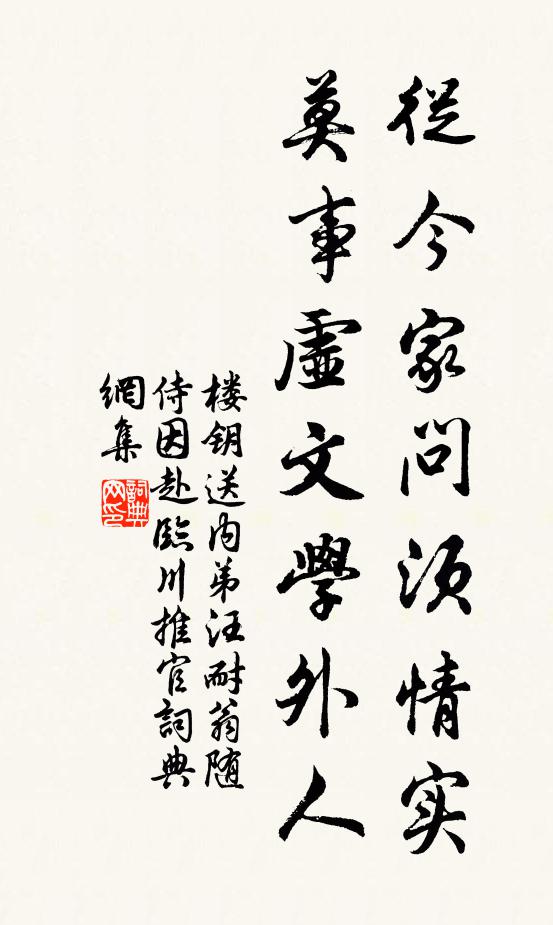 從今家問須情实
莫事虛文學外人
楼钥送内弟汪耐翁随
侍因赴臨川推官詞典
網集
詞典网印